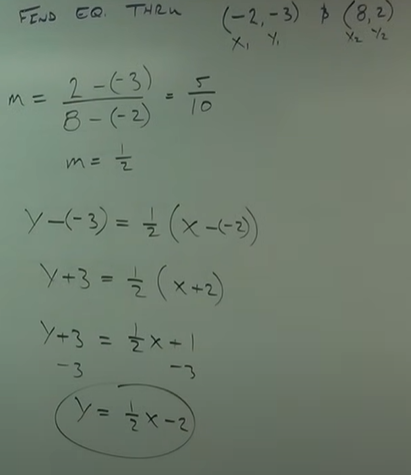 FIND EQ. THRU (-2,-3) & (8,2)
x₁ y₁ x₂ y₂
m = \frac{2-(-3)}{8-(-2)} = \frac{5}{10}
m = \frac{1}{2}
y-(-3) = \frac{1}{2}(x-(-2))
y+3 = \frac{1}{2}(x+2)
y+3 = \frac{1}{2}x+1
-3 -3
y = \frac{1}{2}x-2